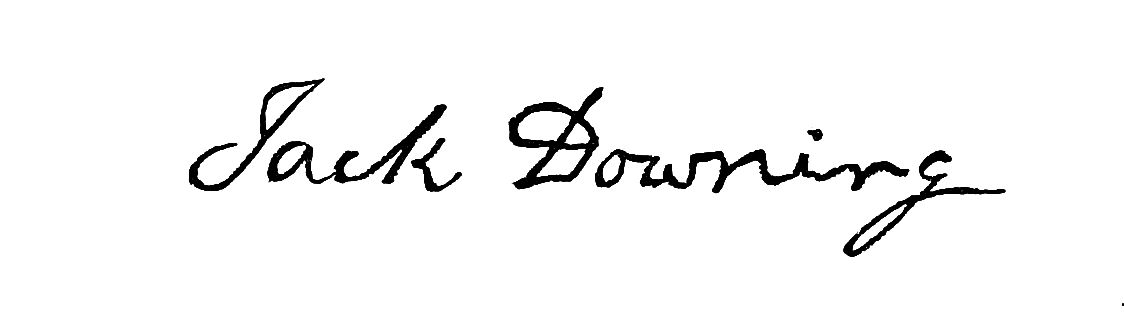 Jack Downing